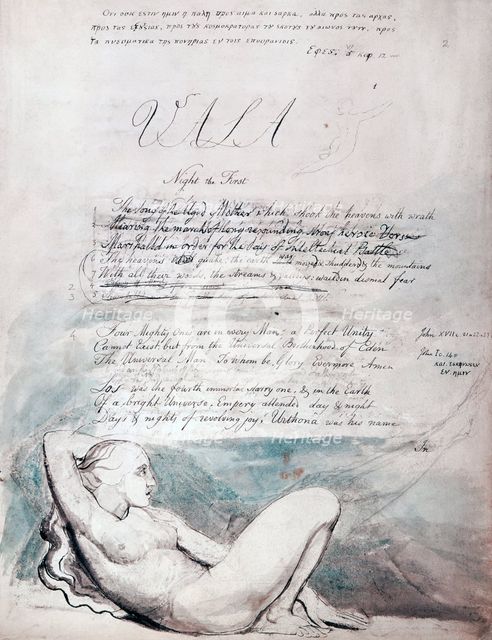 Οτι ουκ εστιν ημιν η παλη προς αιμα και σαρκα, αλλα προς τας αρχας,
προς τας εξουσιας, προς τους κοσμοκρατορας του σκοτους του αιωνος τουτου, προς
τα πνευματικα της πονηριας εν τοις επουρανιοις.
Εφες: κεφ. 12
2
1
VALA
Night the First
The Song of the Aged Mother which shook the heavens with wrath
Hearing the march of long resounding strong heroic Verse
Marshalld in order for the day of Intellectual Battle
The heavens quake: the earth moved & shudderd & the mountains
With all their woods, the streams & valleys: waild in dismal fear
4 Four Mighty Ones are in every Man; a Perfect Unity John XVII c. 21 & 22 & 23
Cannot Exist. but from the Universal Brotherhood of Eden John I c. 14 v
The Universal Man. To whom be Glory Evermore Amen και εσκηνωσεν
εν ημιν
Los was the fourth immortal starry one, & in the Earth
Of a bright Universe, Empery attended day & night
Days & nights of revolving joy, Urthona was his name
In
Heritage
Heritage
Heritage
Heritage
Heritage
Heritage